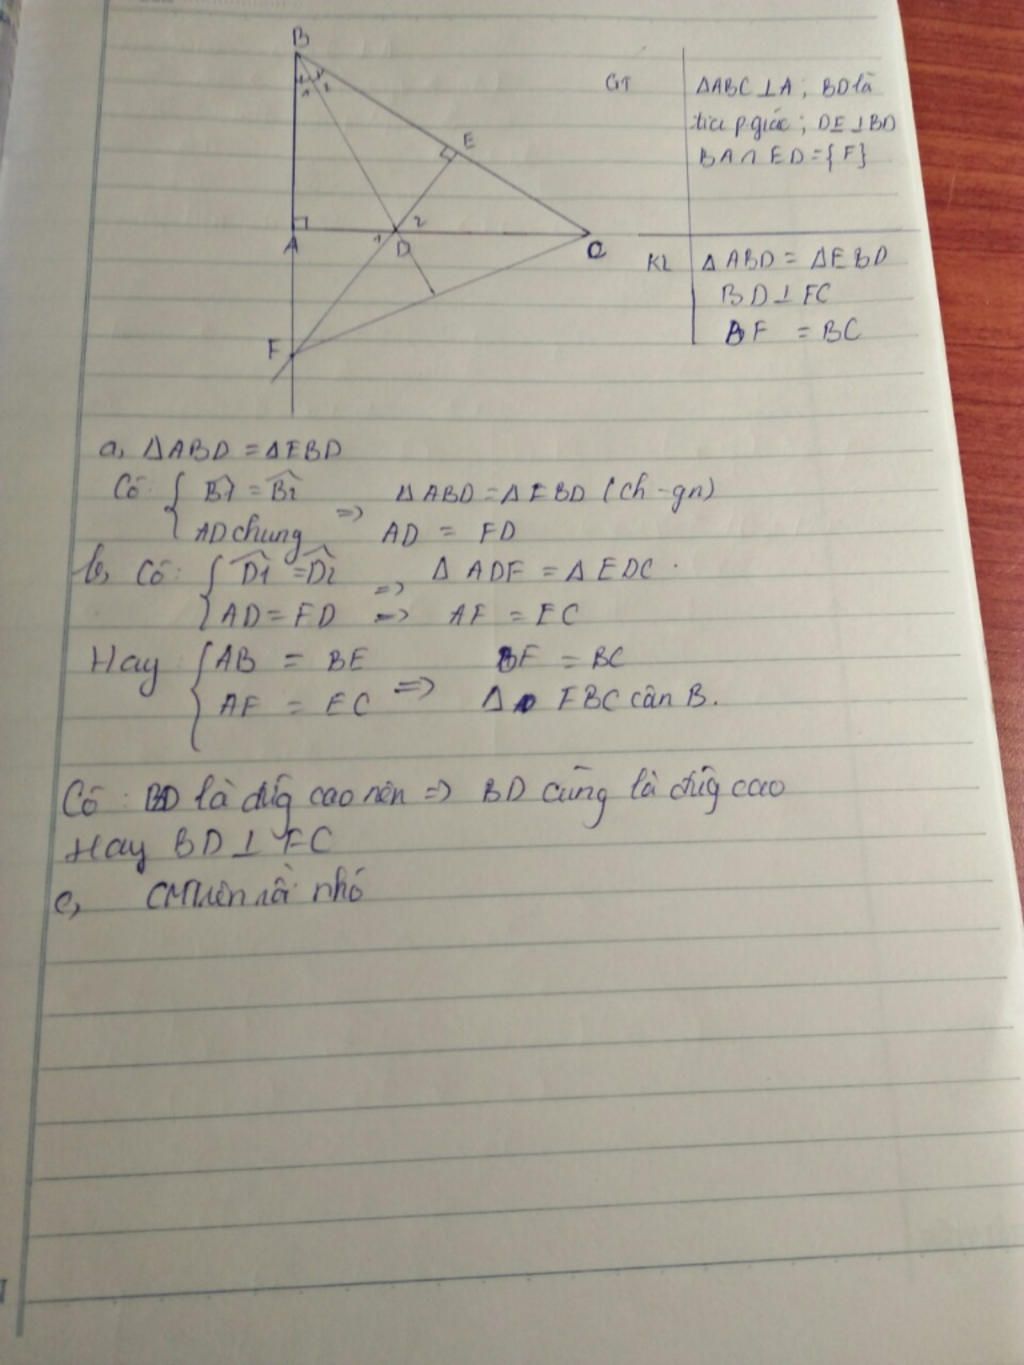 B
1 2
E
A
1 D 2
C
F
GT
ΔABC ⊥ A ; BD là
tia p.giác ; DE ⊥ BD
BA ∩ ED = {F}
KL
Δ ABD = ΔEBD
BD ⊥ FC
BF = BC
a, ΔABD = ΔEBD
Có: { B̂1 = B̂2 => ΔABD = ΔEBD (ch - gn)
AD chung AD = ED
b, Có: { D̂1 = D̂2 => Δ ADF = Δ EDC.
AD = ED => AF = EC
Hay { AB = BE BF = BC
AF = EC => Δ FBC cân B.
Có : BD là đứg cao nên => BD cũng là đứg cao
Hay BD ⊥ FC
c, CM trên rồi nhó